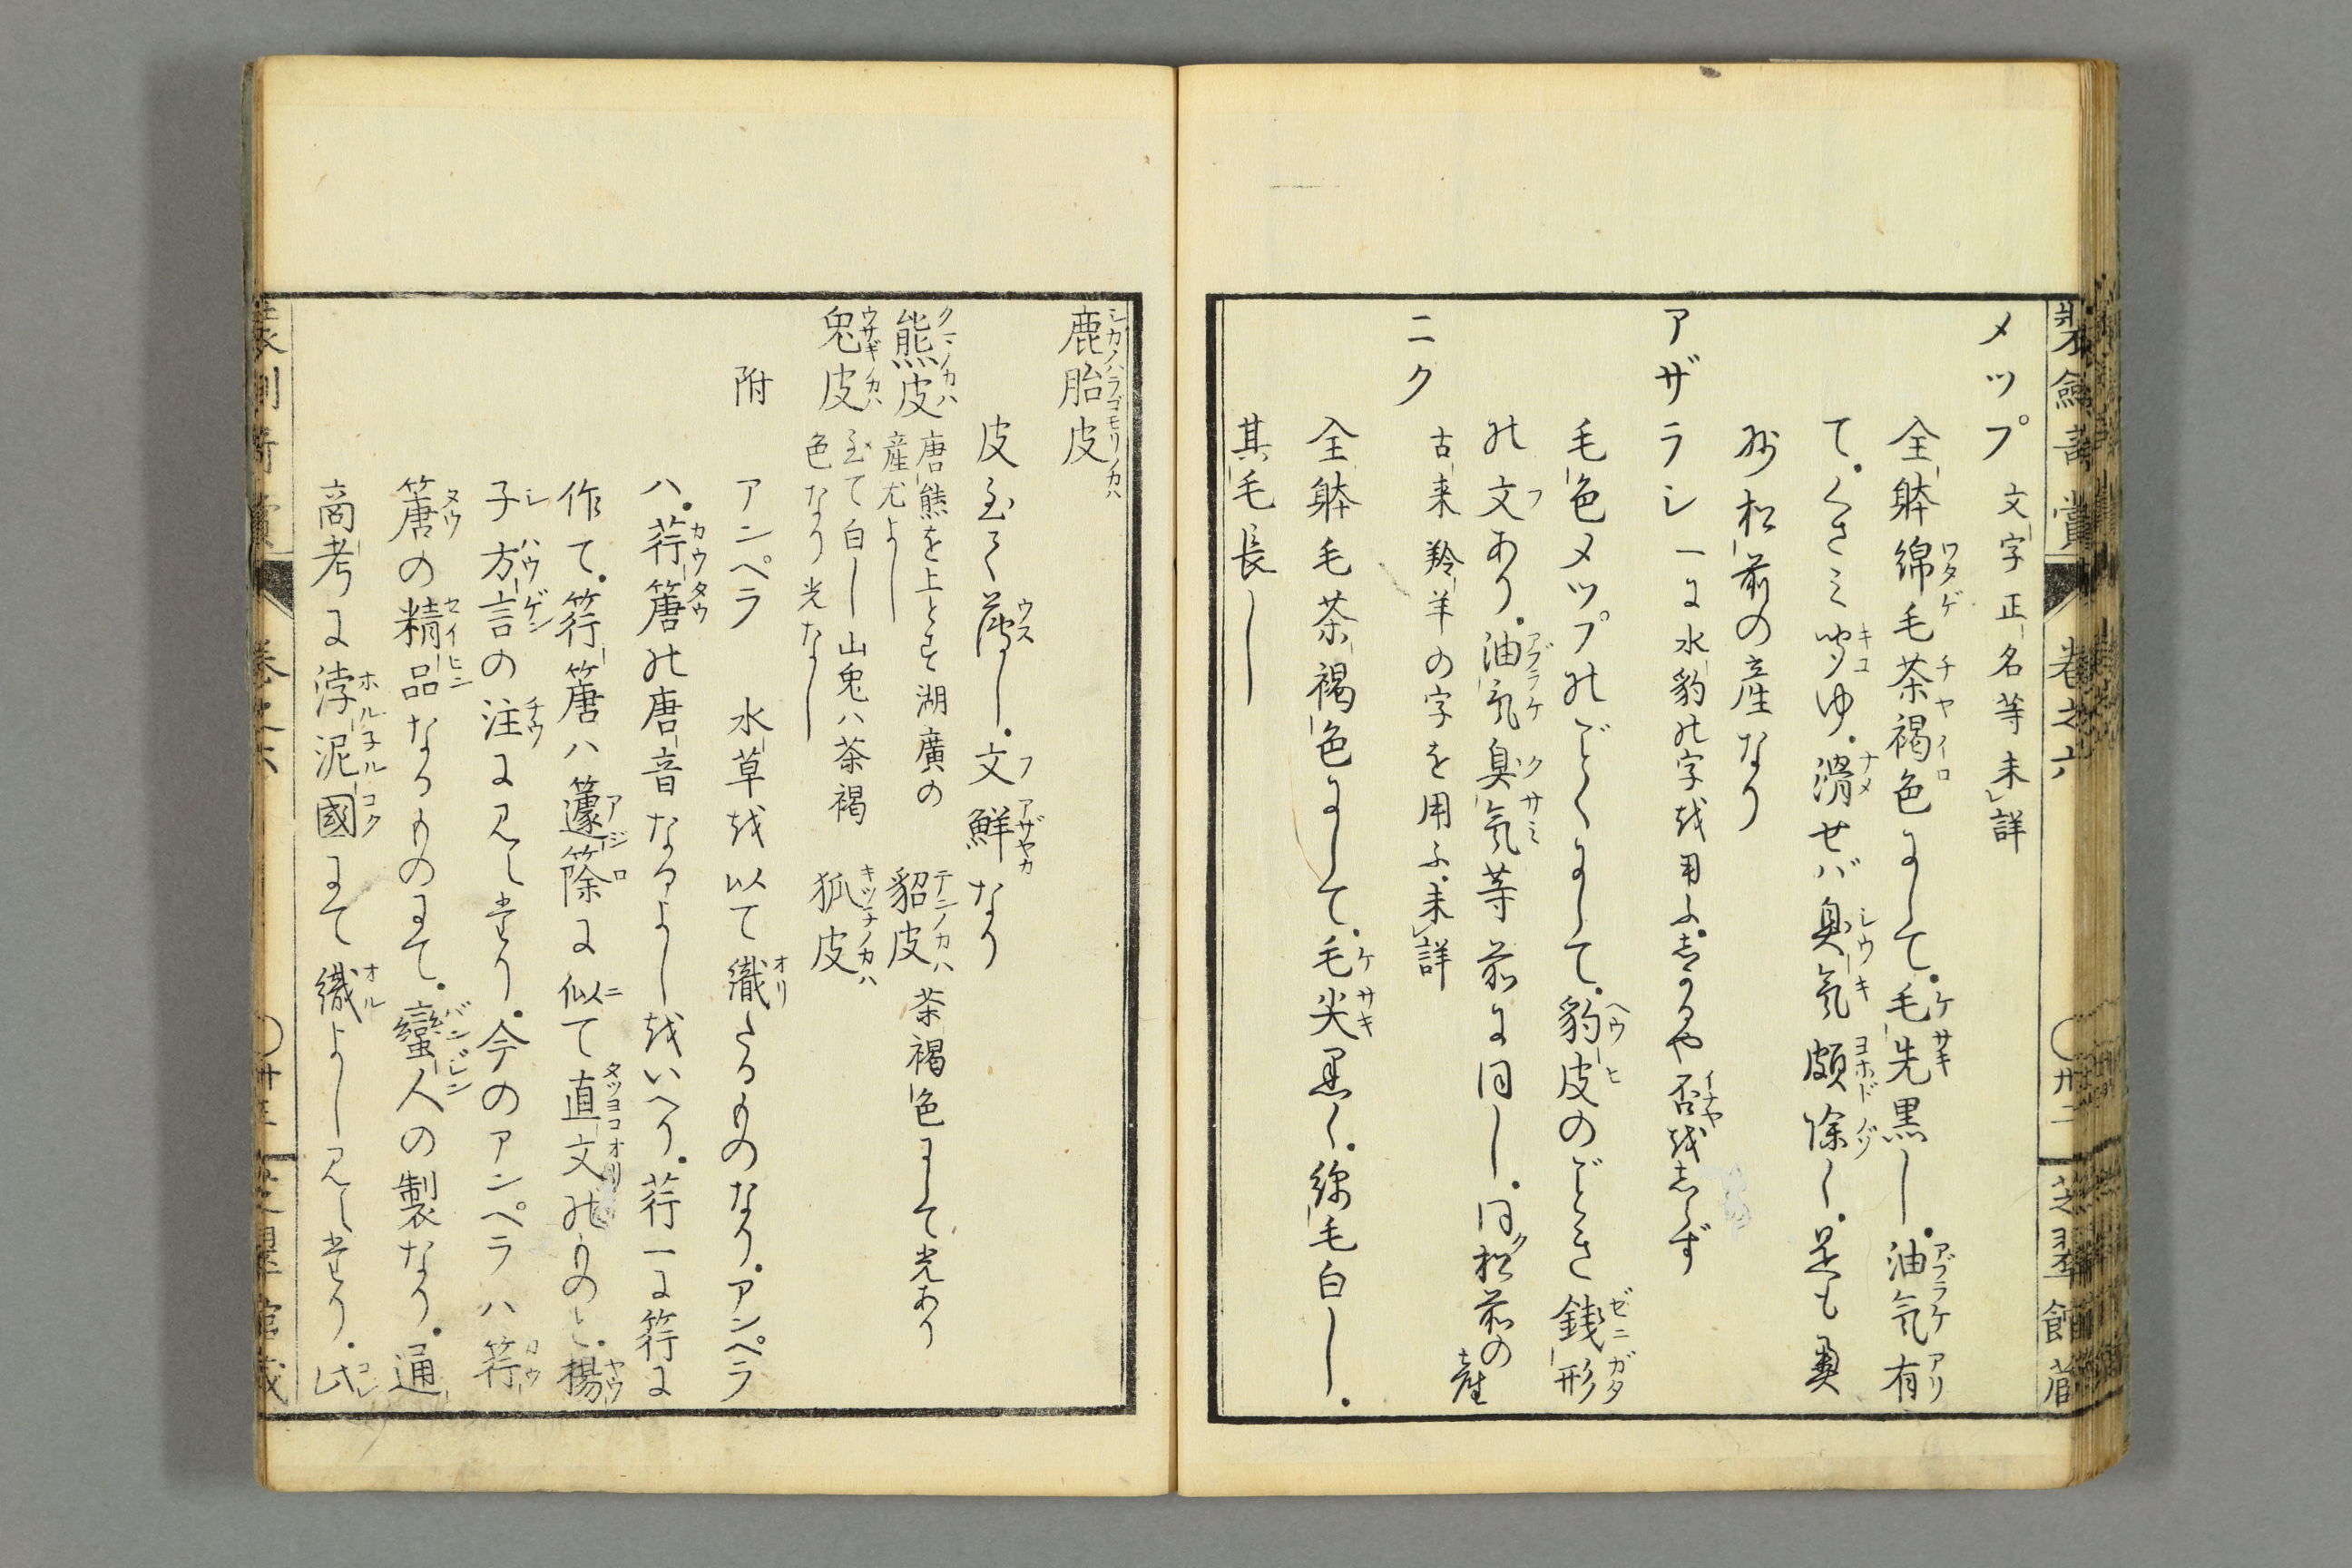 メツプ 文字正名等未詳
全躰綿毛茶褐色にして。毛先黒し。油気有
て。くさミ聞ゆ。滑せバ臭気頗除く。是も奥
州松前の産なり
アザラシ 一に水豹の字を用ふ。志かるや否を志らず
毛色メツプのごとくにして。豹皮のごとき銭形
の文あり。油気臭気等前に同し。同松前の産
ニク 古来羚羊の字を用ふ。未詳
全躰毛茶褐色にして。毛尖黒く。綿毛白し。
其毛長し
鹿胎皮
皮至て薄し。文鮮なり
熊皮 唐熊を上とす湖廣の産尤よし 貂皮 茶褐色にして光あり
兎皮 至て白し山兎ハ茶褐色なり光なし 狐皮
附 アンペラ 水草を以て織たるものなり。アンペラ
ハ。荇䈪の唐音なるよしをいへり。荇一に筕に
作て。筕䈪ハ籧篨に似て直文のものと。楊
子方言の注に見へたり。今のアンペラハ筕
䈪の精品なるものにて。蠻人の製なり。通
商考に浡泥國にて織よし見へたり。此
卷之六